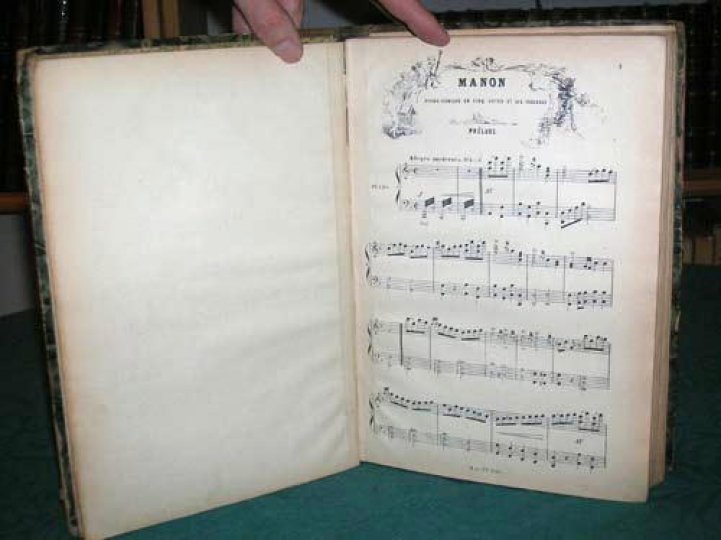 MANON
OPÉRA-COMIQUE EN CINQ ACTES ET SIX TABLEAUX
PRÉLUDE
Allegro
PIANO
ff
ff